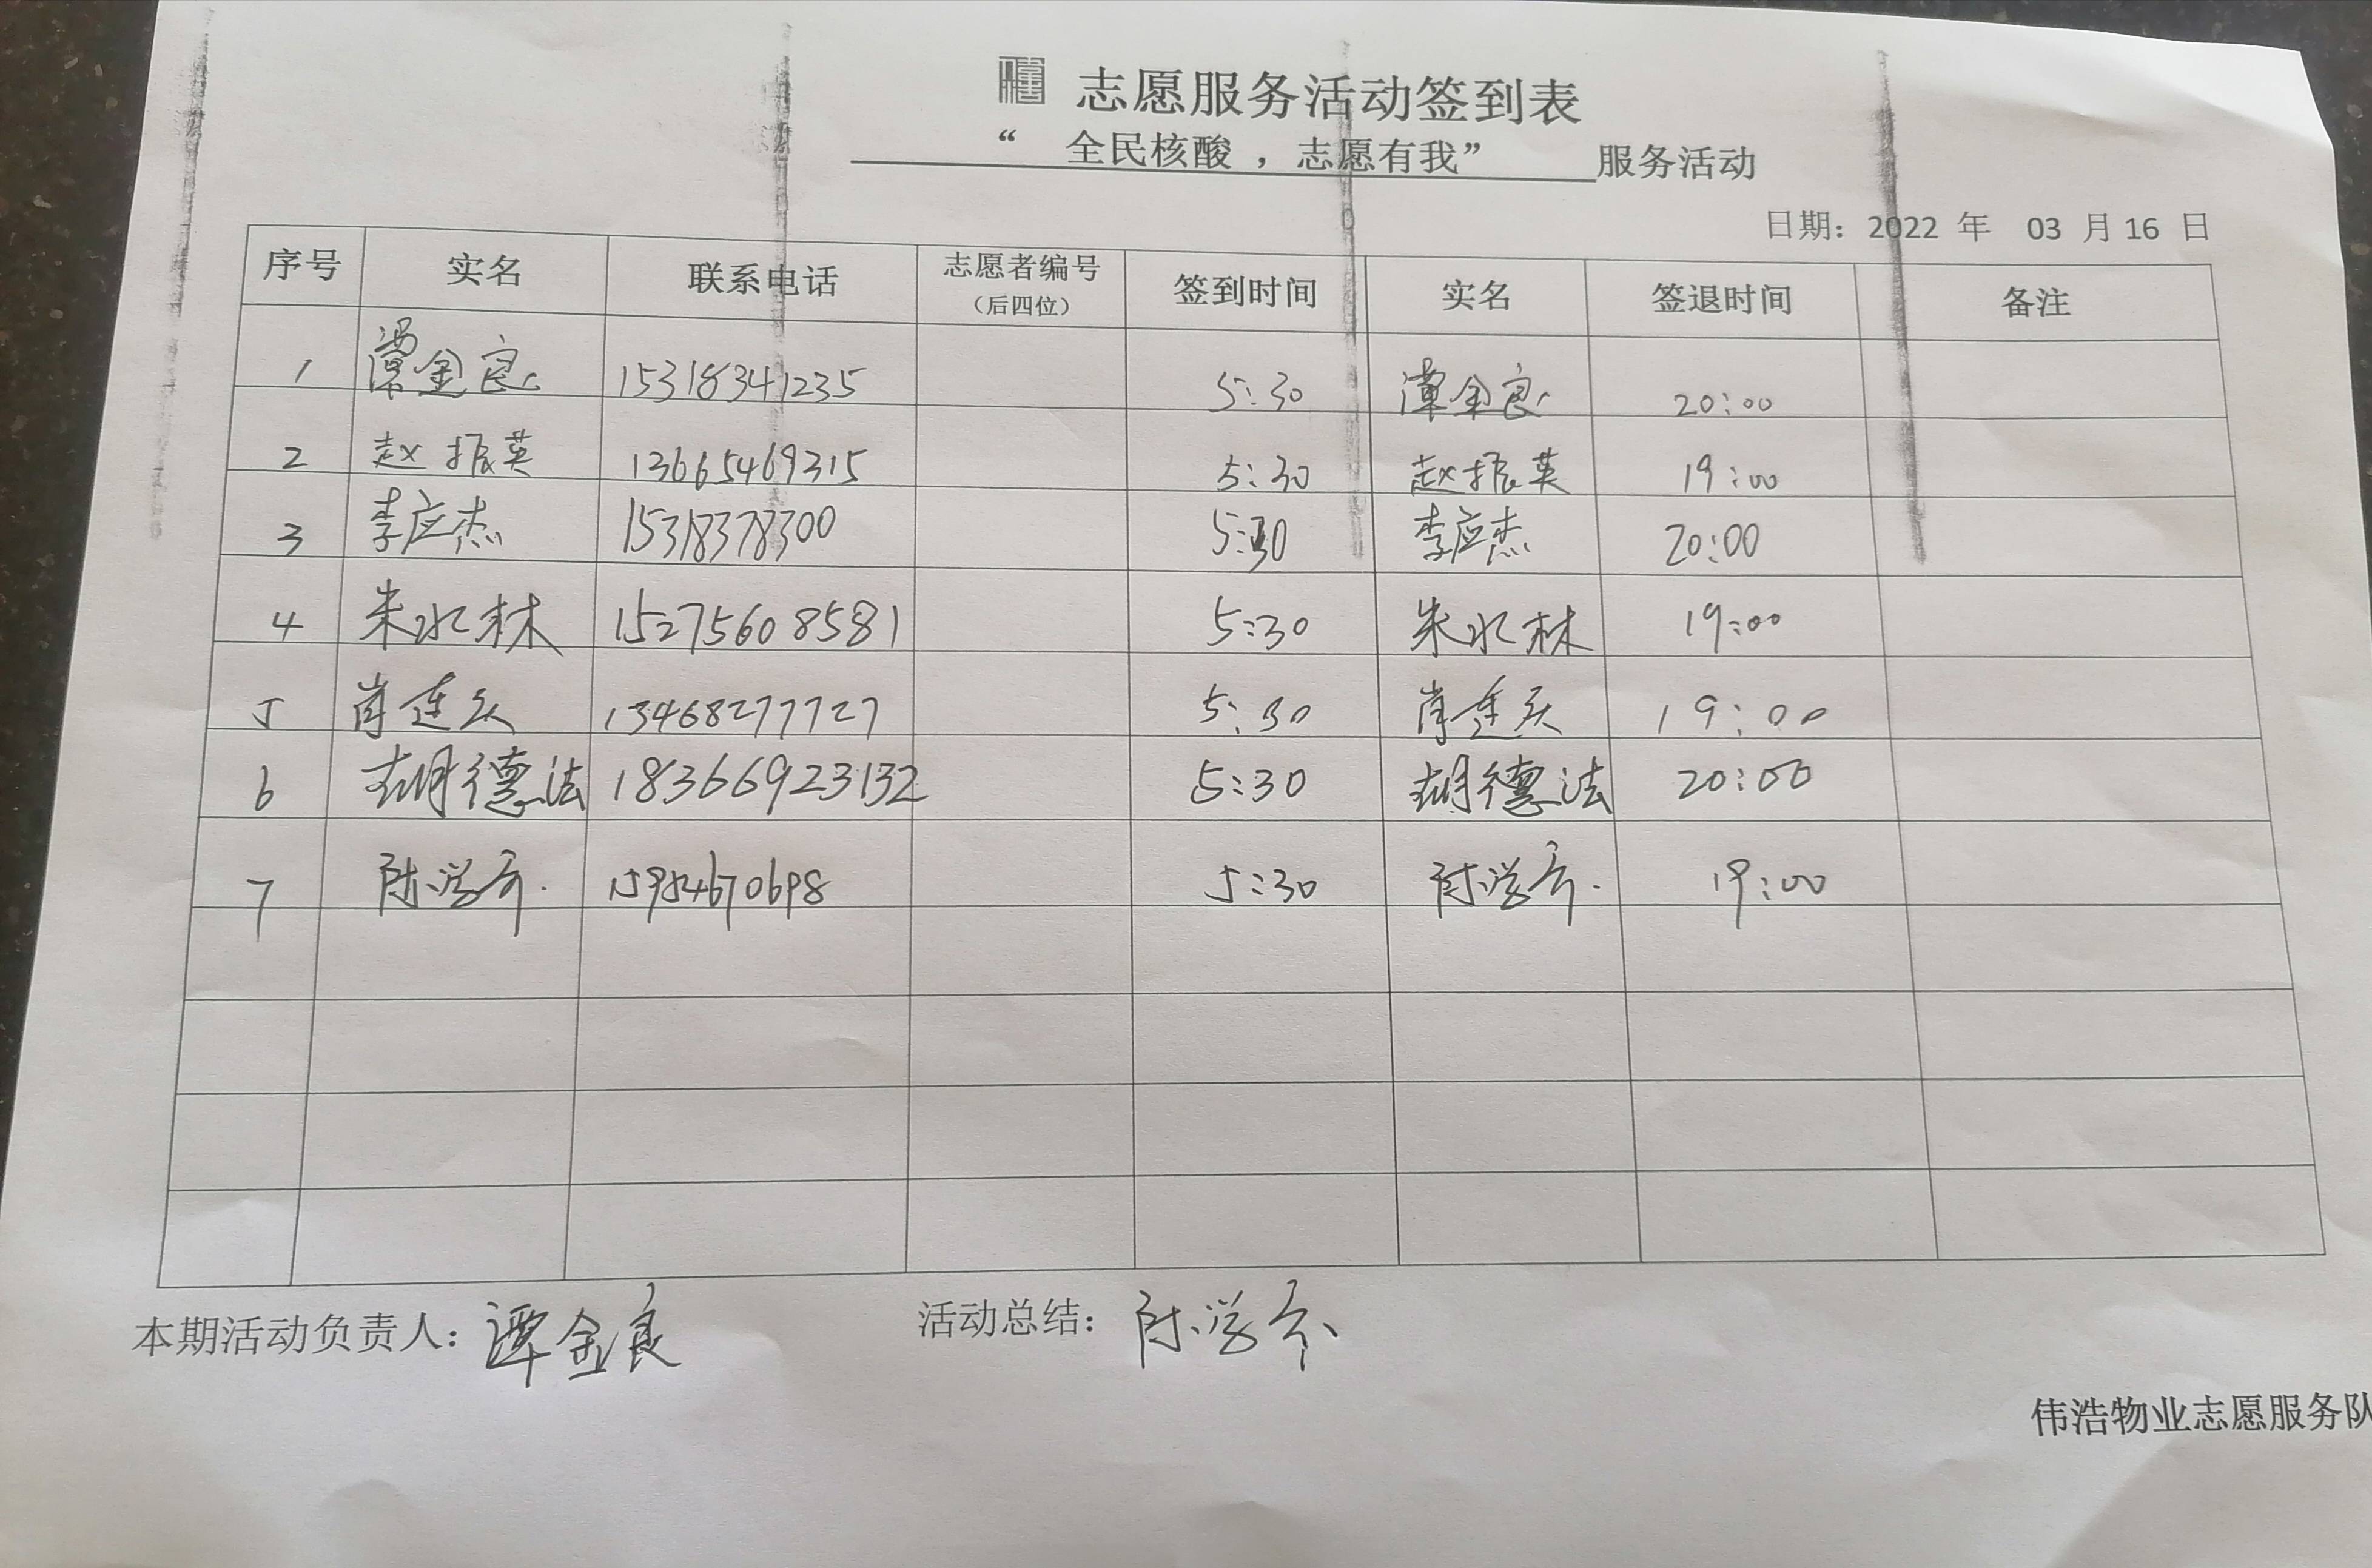 志愿服务活动签到表
“ 全民核酸 ，志愿有我” 服务活动
日期：2022 年 03 月 16 日
序号 实名 联系电话 志愿者编号（后四位） 签到时间 实名 签退时间 备注
1 谭金良 15318341235 5:30 谭金良 20:00
2 赵振英 13665469315 5:30 赵振英 19:00
3 李应杰 15318378300 5:30 李应杰 20:00
4 朱水林 15275608581 5:30 朱水林 19:00
5 肖连 13468277727 5:30 肖连 19:00
6 胡德法 18366923132 5:30 胡德法 20:00
7 陈学齐 15954670698 5:30 陈学齐 19:00
本期活动负责人：谭金良 活动总结：陈学齐
伟浩物业志愿服务队